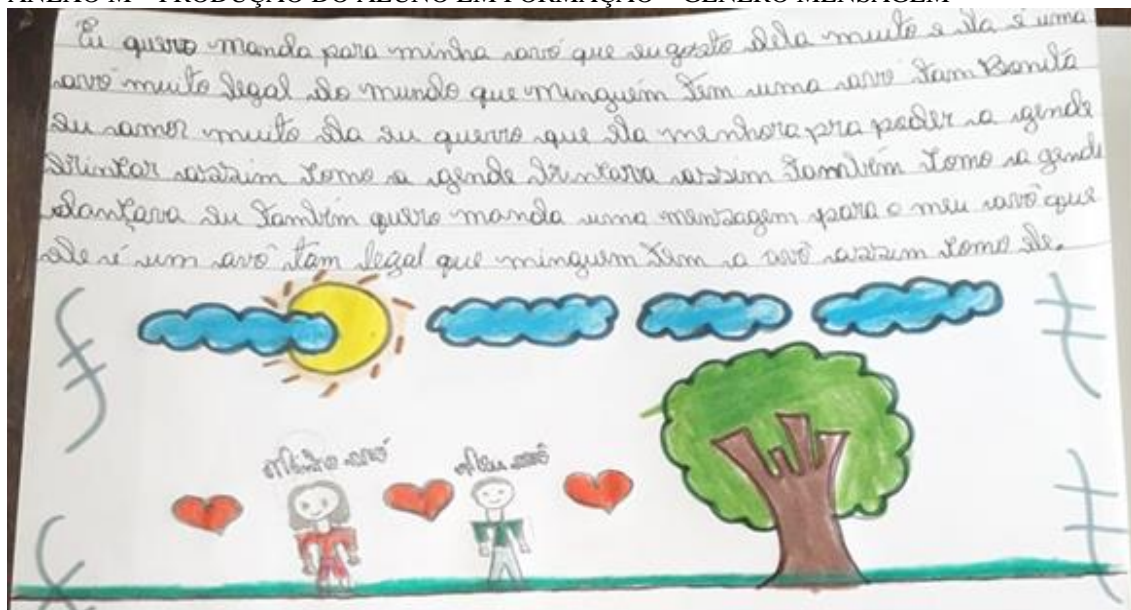 ANEXO M – PRODUÇÃO DO ALUNO EM FORMAÇÃO – GÊNERO MENSAGEM
Eu quero manda para minha avó que eu gosto dela muito e ela é uma
avó muito legal do mundo que minguém tem uma avó tam Bonita
eu amor muito ela eu querro que ela menhora pra poder a gende
brincar assim como a gende brincava assim também como a gende
dançava eu também quero manda uma mensagem para o meu avô que
ele é um avô tam legal que minguem tem a avô assim como ele.
Minha avó
Meu avô